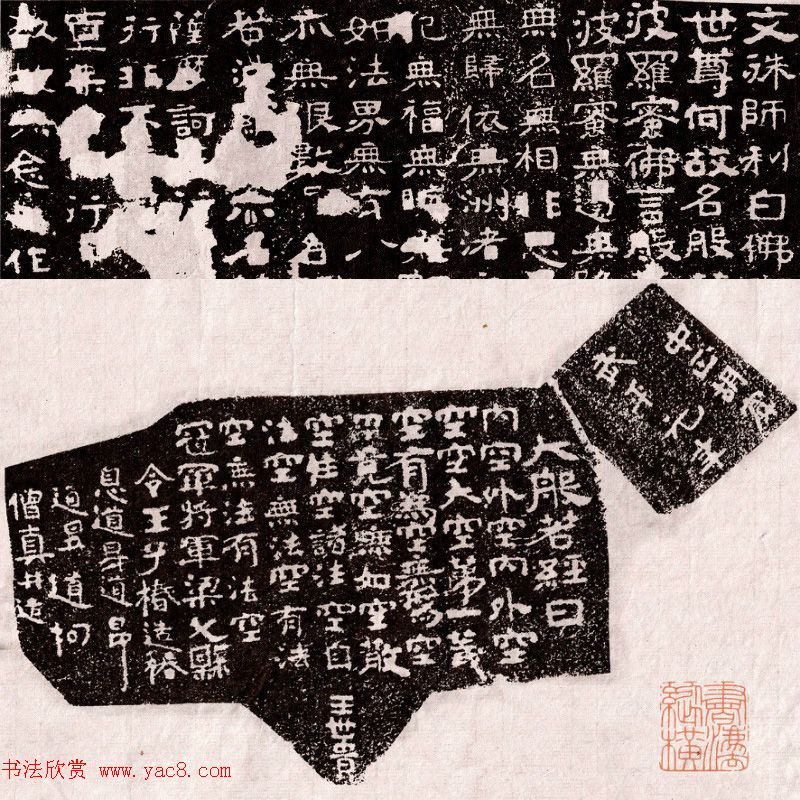 文殊師利白佛
世尊何故名般
波羅蜜佛言般
波羅蜜無邊無
無名無相非思
無歸依無洲渚
犯無福無晦無
如法界無有八
亦無限數 名
若 亦名
薩摩訶
行非不
直 行
故無念 作
中正胡賓
武平元年
大般若經曰
內空外空內外空
空空大空第一義
空有為空無為空
畢竟空無如空散
空性空諸法空自
法空無法空有法
空無法有法空
冠軍將軍梁父縣
令王子椿造椿
息道昇道昂
道昱道恂
僧真共造
王世貴
书法欣赏 www.yac8.com